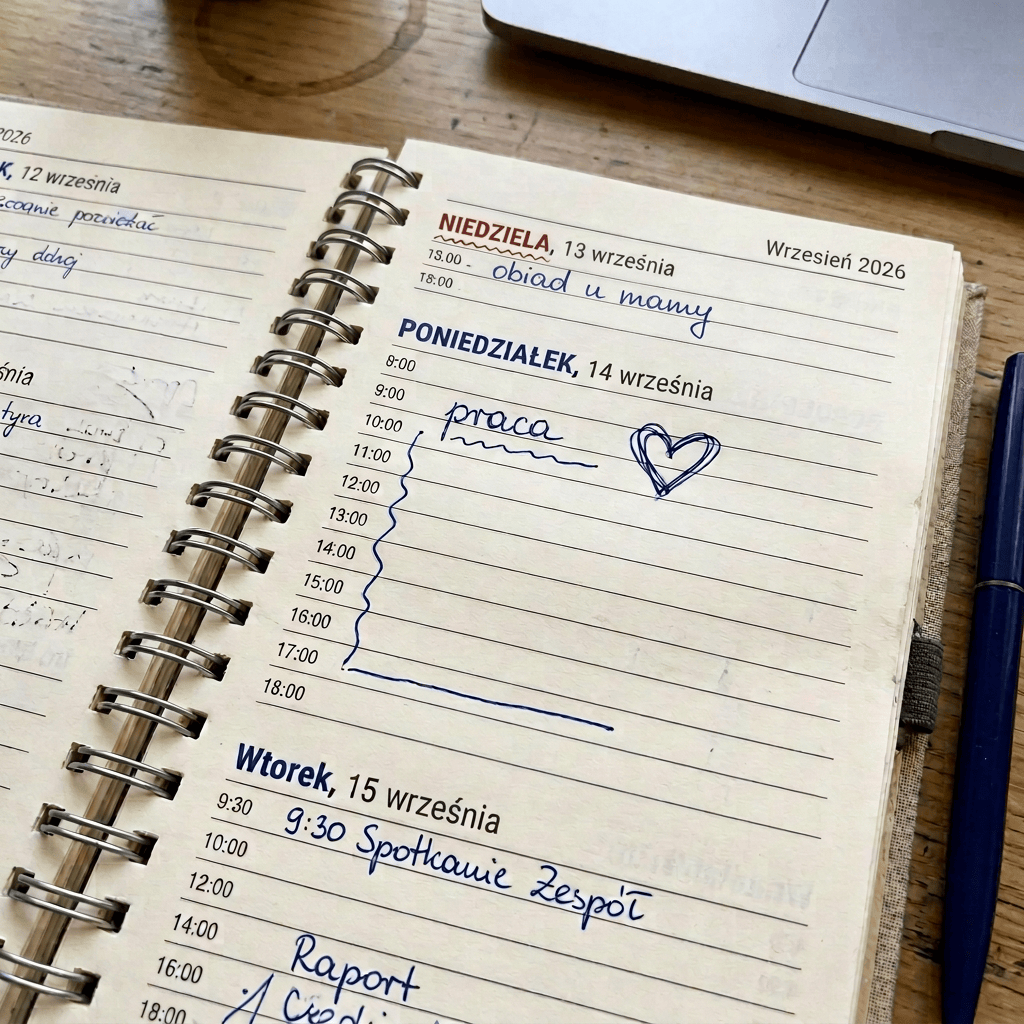 2026
K, 12 września
ry ddrgj
śnia
tyra
NIEDZIELA, 13 września Wrzesień 2026
13.00 - obiad u mamy
18:00
PONIEDZIAŁEK, 14 września
8:00
9:00 praca
10:00
11:00
12:00
13:00
14:00
15:00
16:00
17:00
18:00
Wtorek, 15 września
9:30 9:30 Spotkanie Zespół
10:00
12:00
14:00 Raport
16:00
18:00